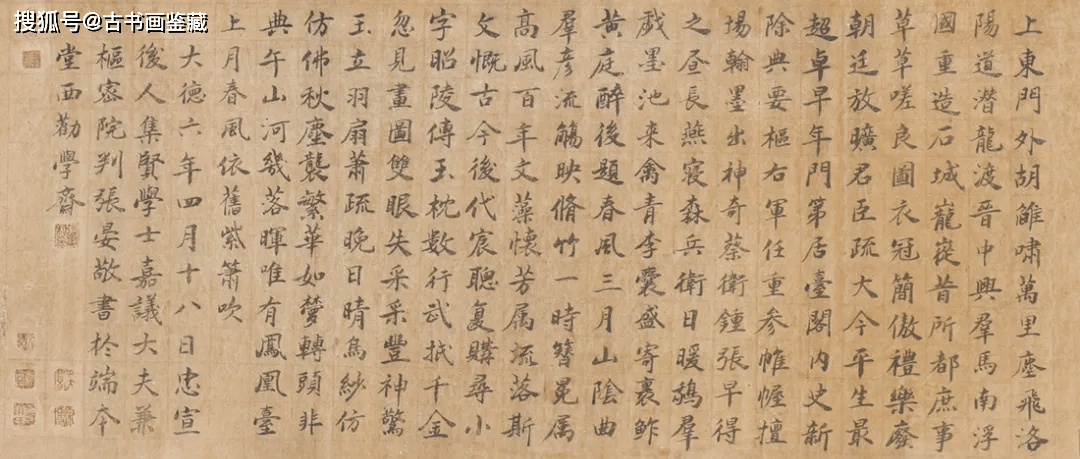 搜狐号@古书画鉴藏
上東門外胡雛嘯萬里塵飛洛
陽道潜龍渡晉中興羣馬南浮
國重造石城巃嵸昔所都庶事
草草嗟良圖衣冠簡傲禮樂廢
朝廷放曠君臣疏大令平生最
超卓早年門第居臺閣内史新
除典要樞右軍任重参帷幄擅
場翰墨出神奇蔡衛鍾張早得
之昼長燕寢森兵衛日暖鵝羣
戲墨池来禽青李囊盛寄裹鮓
黄庭醉後題春風三月山陰曲
羣彦流觴映脩竹一時簪冕属
高風百年文藻懷芳属流落斯
文慨古今後代宸聰复購尋小
字昭陵傳玉枕數行武抵千金
忽見畫圖雙眼失采采豐神驚
玉立羽扇蕭疏晚日晴烏紗仿
仿佛秋塵襲繁華如夢轉頭非
典午山河幾落暉唯有鳳凰臺
上月春風依舊紫簫吹
大德六年四月十八日忠宣
後人集賢學士嘉議大夫兼
樞密院判張晏敬書於端本
堂西勸學齋